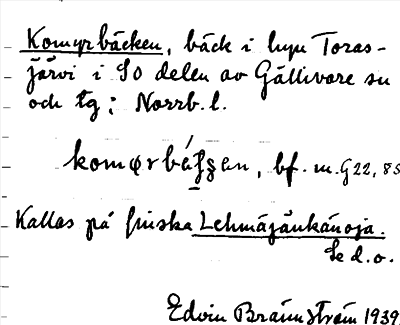 Komyrbäcken, bäck i byn Toras-
järvi i SO delen av Gällivare sn
och tg; Norrb. l.
komørbáʃʂen, bf. m. G22, 85
Kallas på finska Lehmäjänkänoja.
Se d.o.
Edvin Brännström 1939.